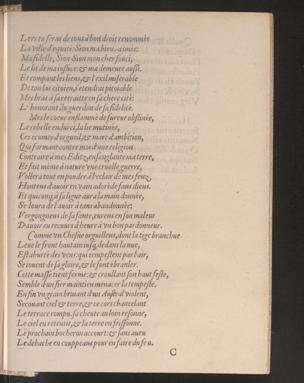 Lors tu seras de tous à bon droit renommée
La ville d'equité: Sion ma bien-aimée:
Ma fidelle, Sion Sion mon cher souci,
Le lit de ma iustice & ma demeure aussi.
Et rompant les liens, & l'exil miserable
De ton los citoien, i'etendrai pitoiable
Mes bras à sa retraitte en sa chere cité:
L'honorant du guerdon de sa fidelité.
Mes le coeur enflammé de fureur obstinée,
Le rebelle endurci, la lie mutinée,
Ces ecumes d'orgueil, & marc d'ambition,
Qui formant contre moi d'une religion
Contraire à mes Editz, ensanglante ma terre,
Et fait même à nature une cruelle guerre,
Vollera tout en poudre à l'eclair de mes feuz,
Honteus d'avoir en vain adoré de faus dieus.
Et quiconq à sa ligue aura la main donnée,
Se loura de l'avoir à tans abandonnée:
Vergongneus de sa faute, eureus en son maleur
D'avoir eu recours à heure à un bon pardonneur.
Comme un Chesne orguillens, dont la tige branchue
Leue le front hautain iusq dedans la nue,
Est ahurté des vens: qui tempestent par hair,
Se iouent de sa gloire, & le font ébranler.
Cette masse tient ferme: & croullant son haut feste,
Semble d'un fier maintien menacer la tempeste,
En fin un grain bruiant d'un Austral violent,
Secouant ciel & terre, & ce cors chancelant
Le terrace rompu. sa cheute au loin resonne,
Le ciel en retentit, & la terre en frissonne.
Le prochain bocheron accourt: & sans
Le debache en couppeaus pour en faire du feu.
C